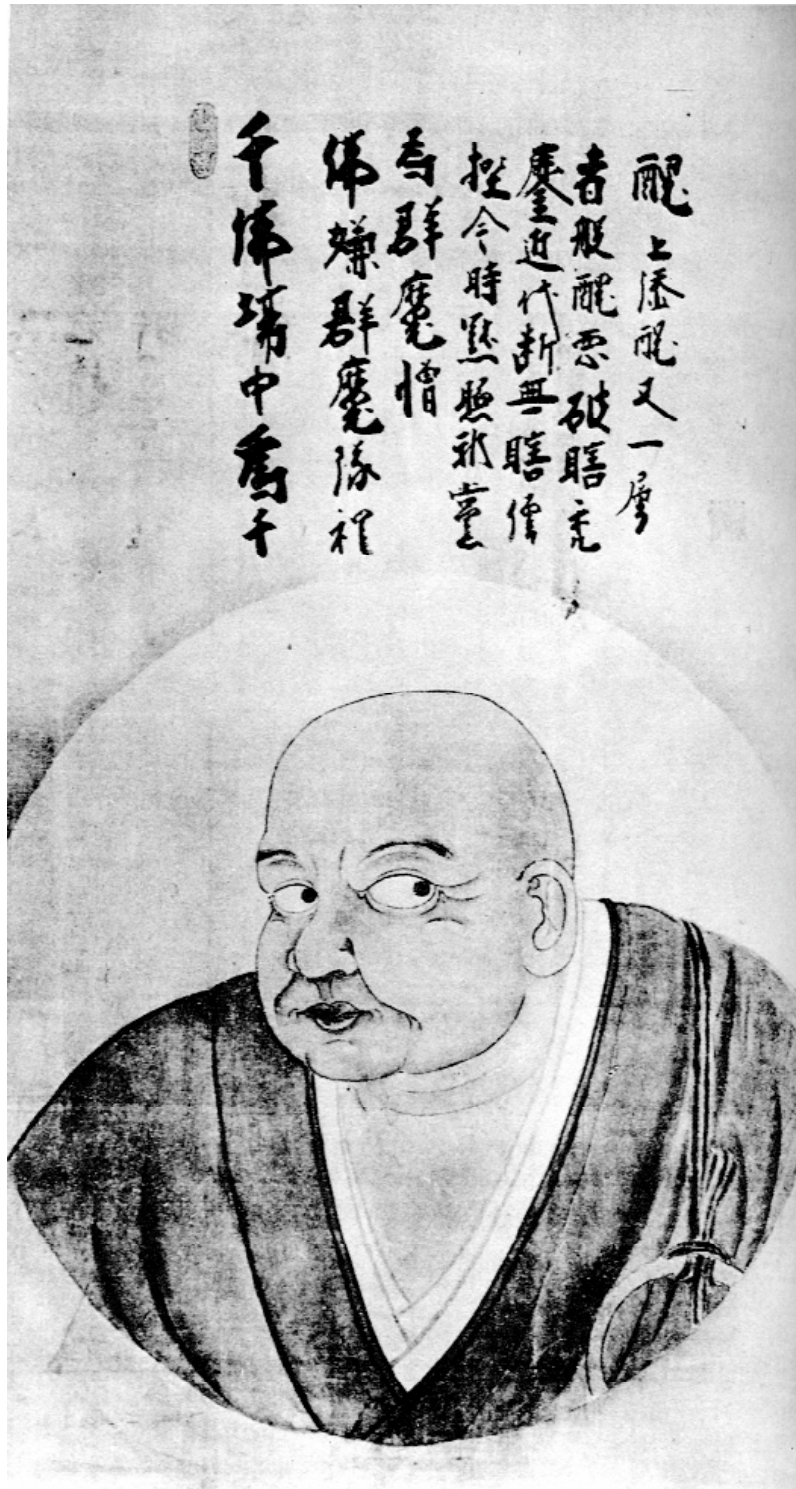 千佛場中爲千
佛嫌群魔隊裡
爲群魔憎
挫今時黙照邪黨
鏖近代断無瞎僧
者般醜悪破瞎禿
醜上添醜又一層